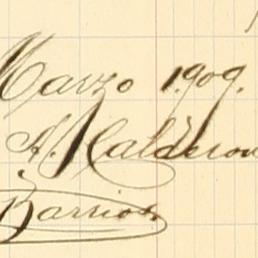 Marzo 1909.
A. Kalderon
Barrios